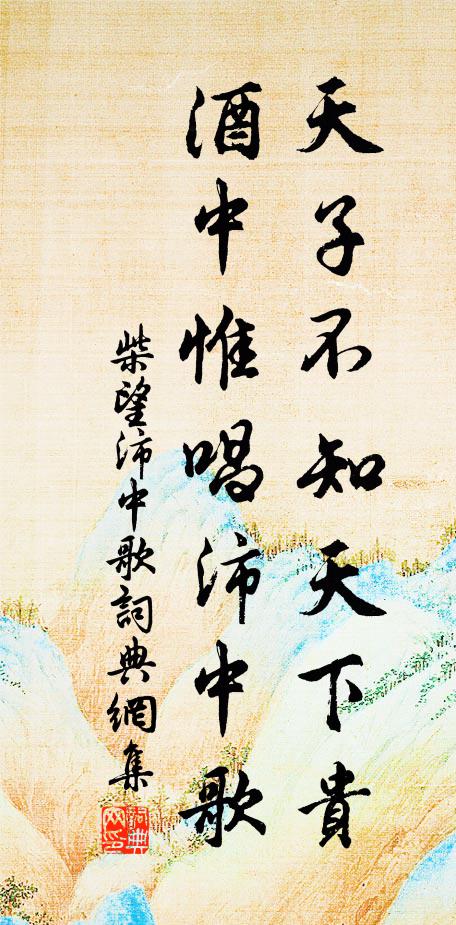 天子不知天下貴
酒中惟唱沛中歌
柴望沛中歌詞典網集
詞典
网印